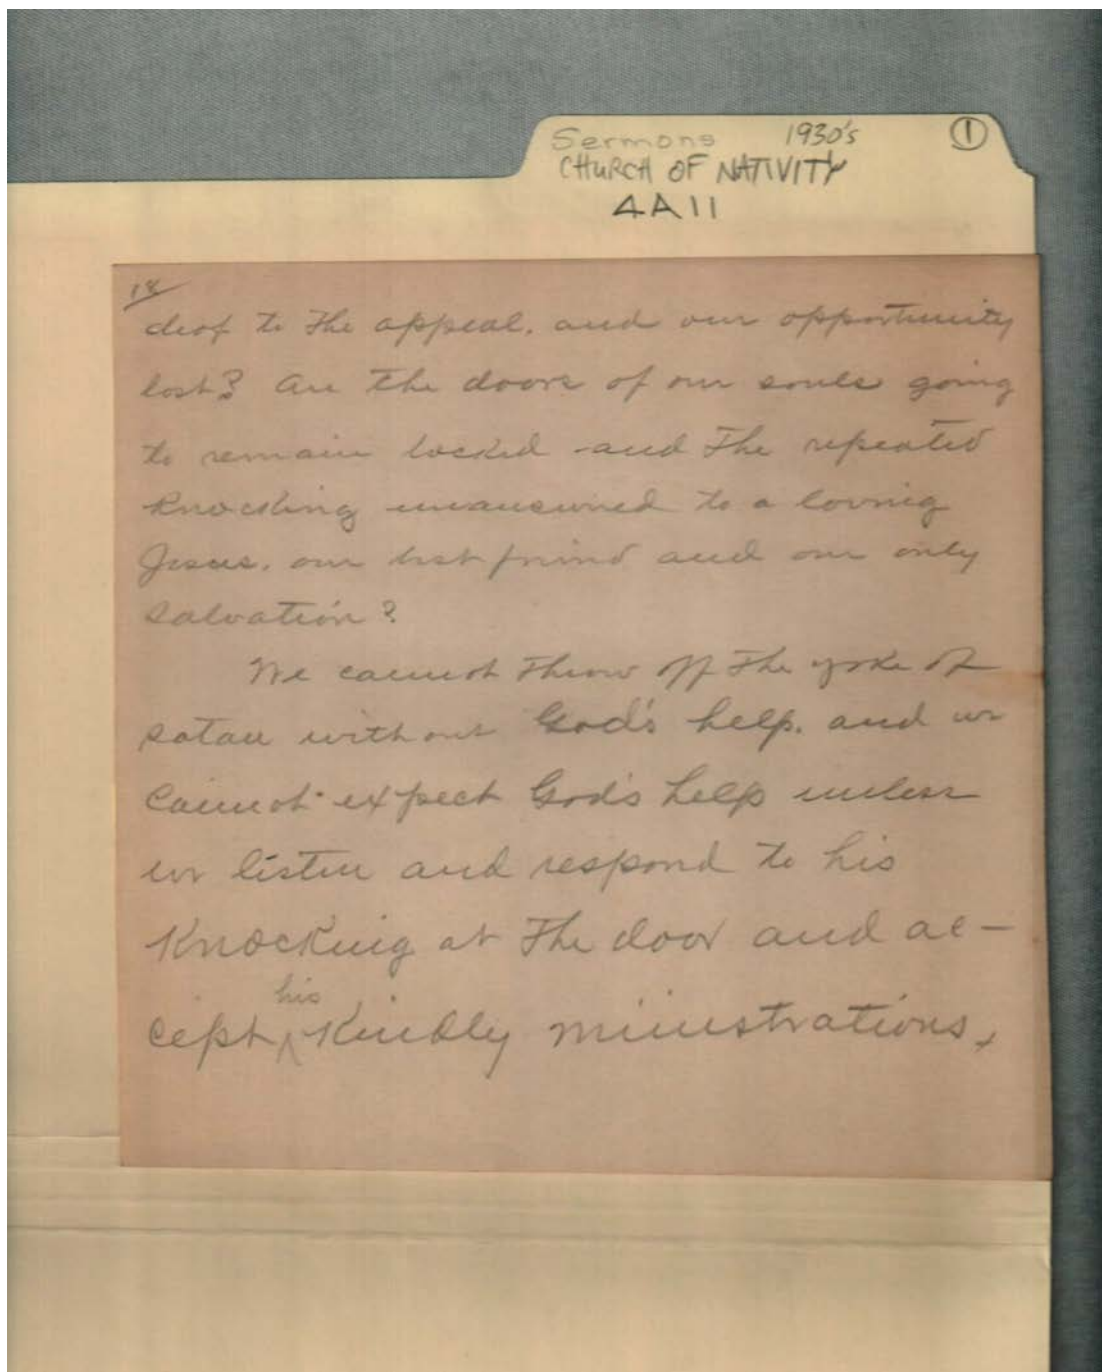 Sermons 1930's ①
CHURCH OF NATIVITY
4A11
18
deaf to the appeal, and our opportunity
lost? Are the doors of our souls going
to remain locked and the repeated
knocking unanswered to a loving
Jesus, our best friend and our only
salvation?
We cannot throw off the yoke of
satan without God's help, and we
cannot expect God's help unless
we listen and respond to his
Knocking at the door and ac-
his
cept ^ Kindly ministrations,